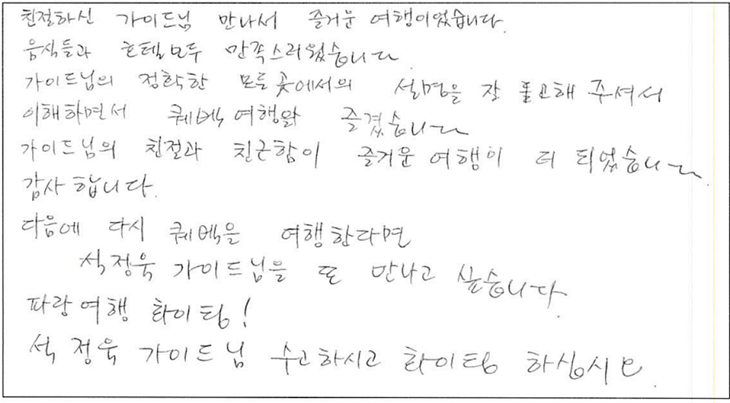 친절하신 가이드님 만나서 즐거운 여행이었습니다.
음식들과 호텔모두 만족스러웠습니다.
가이드님의 정확한 모든 곳에서의 설명을 잘 해 주셔서
이해하면서 퀘벡여행을 즐겼습니다
가이드님의 친절과 친근함이 즐거운 여행이 더 되었습니다
감사합니다.
다음에 다시 퀘벡을 여행한다면
석정욱 가이드님을 또 만나고 싶습니다.
파랑여행 화이팅!
석정욱 가이드님 수고하시고 화이팅 하십시오.